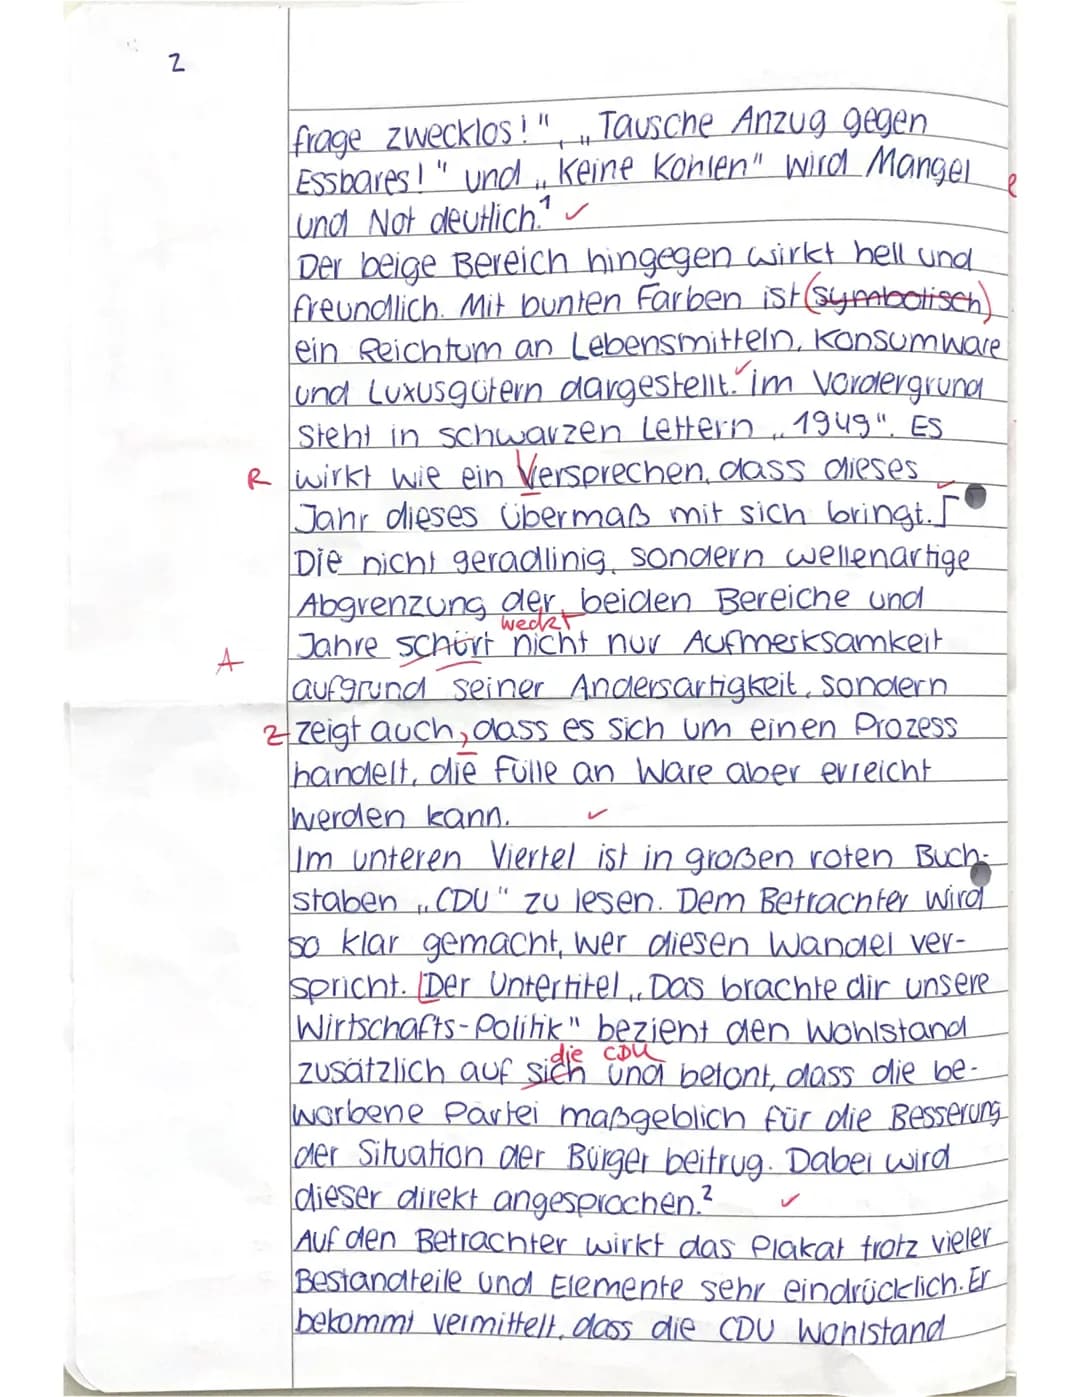 2
frage zwecklos!", „Tausche Anzug gegen
Essbares!" und „Keine Kohlen" wird Mangel
und Not deutlich.¹ ✓
Der beige Bereich hingegen wirkt hell und
freundlich. Mit bunten Farben ist (symbolisch)
ein Reichtum an Lebensmitteln, Konsumware
und Luxusgütern dargestellt. ✓ Im Vordergrund
steht in schwarzen Lettern „1949". Es
R wirkt wie ein Versprechen, dass dieses
Jahr dieses Übermaß mit sich bringt. ✓
Die nicht geradlinig, sondern wellenartige
Abgrenzung der beiden Bereiche und
weckt
A Jahre schürt nicht nur Aufmerksamkeit
aufgrund seiner Andersartigkeit, sondern
Z zeigt auch, dass es sich um einen Prozess
handelt, die Fülle an Ware aber erreicht
werden kann. ✓
Im unteren Viertel ist in großen roten Buch-
staben „CDU" zu lesen. Dem Betrachter wird
so klar gemacht, wer diesen Wandel ver-
spricht. Der Untertitel „Das brachte dir unsere
Wirtschafts-Politik" bezieht den Wohlstand
die CDU
zusätzlich auf sich und betont, dass die be-
worbene Partei maßgeblich für die Besserung
der Situation der Bürger beitrug. Dabei wird
dieser direkt angesprochen.² ✓
Auf den Betrachter wirkt das Plakat trotz vieler
Bestandteile und Elemente sehr eindrücklich. Er
bekommt vermittelt, dass die CDU Wohlstand